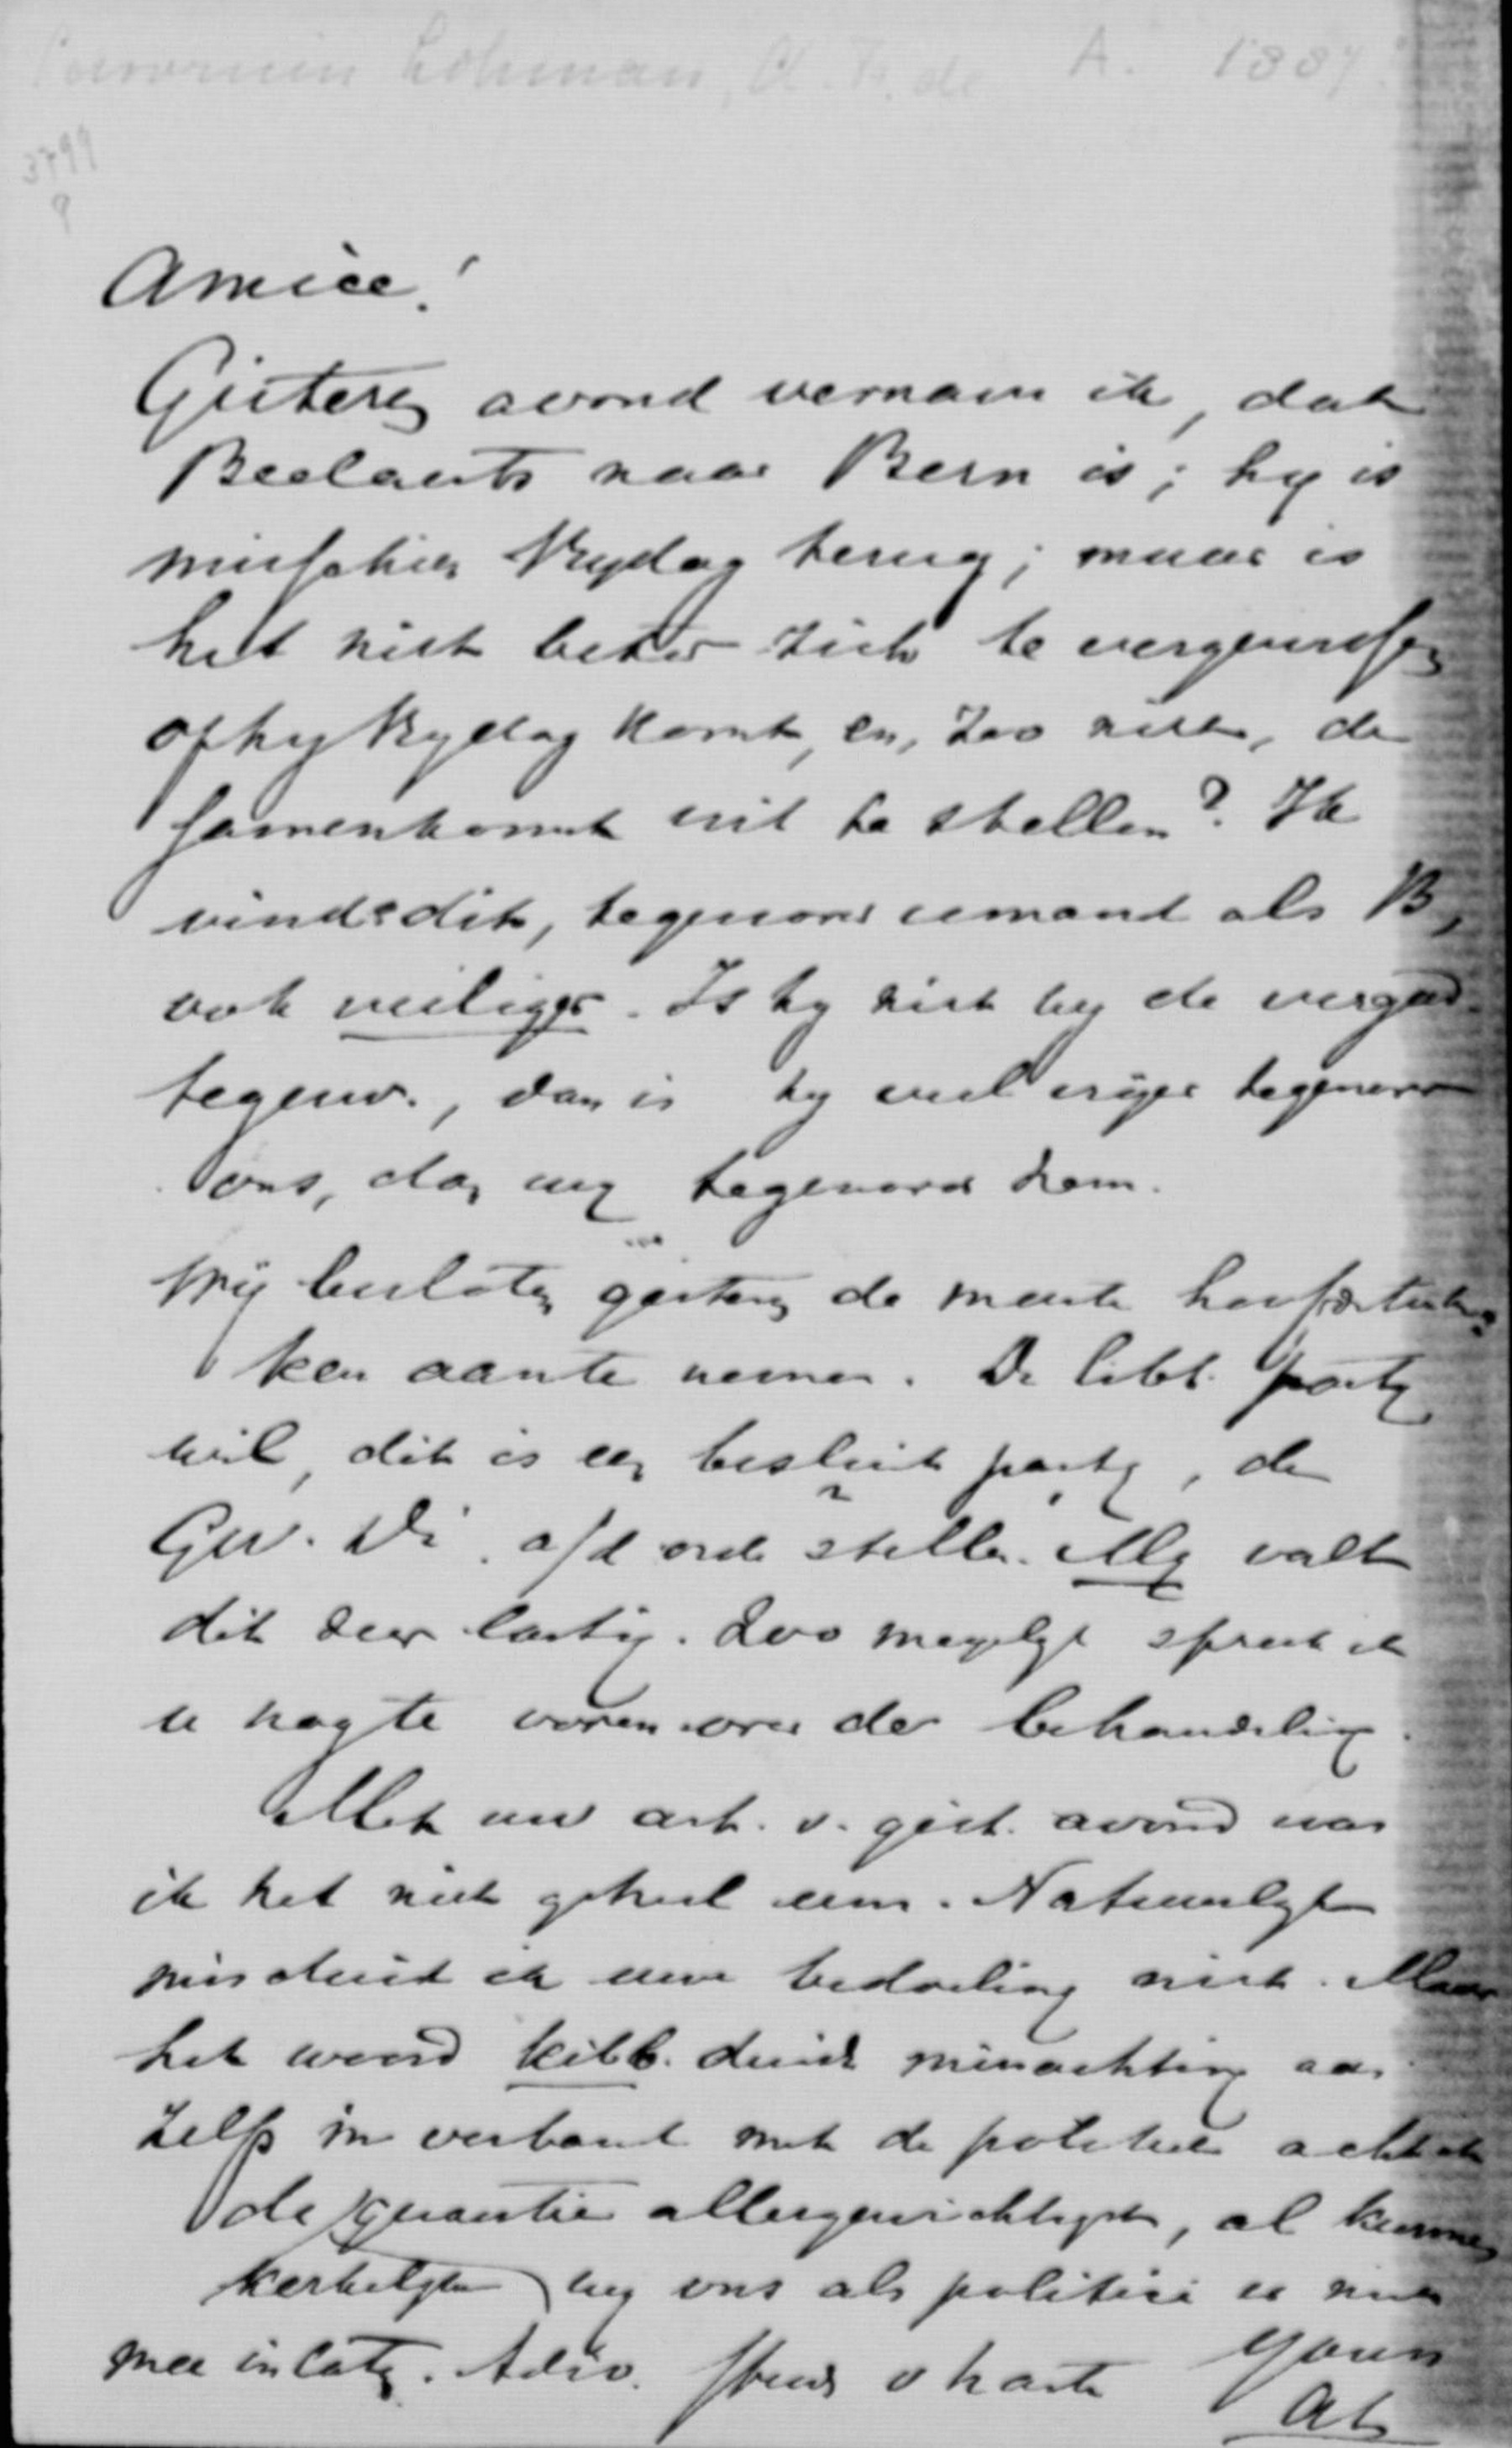 Savornin Lohman, A. F. de A. 1887
3799
Amice!
Gisteren avond vernam ik, dat
Beelaerts naar Bern is; hy is
misschien Vrydag terug; maar is
het niet beter zich te vergewissen
of hy Vrydag komt, en, zoo niet, de
samenkomst uit te stellen? Ik
vind dit, tegenover iemand als B,
ook veiliger. Is hy niet by de vergad.
tegenw., dan is hy veel vryer tegenover
ons, dan wy tegenover hem.
Wij besloten gisteren de meeste hoofdstuk-
ken aan te nemen. De libl. party
wil, dit is een besluit party, de
a/d orde stellen. My valt
dit zeer lastig. Zoo mogelyk spreek ik
u nog te voren over de behandeling.
Met uw art. v. gist. avond was
ik het niet geheel eens. Natuurlyk
misduid ik uwe bedoeling niet. Maar
het woord kibb. duidt minachting aan
Zelfs in verband met de politiek acht ik
de quaestie allergewichtigst, al kunnen
kerkelyke wy ons als politici er niet
mee inlaten. Adio. steeds v harte yours
AL